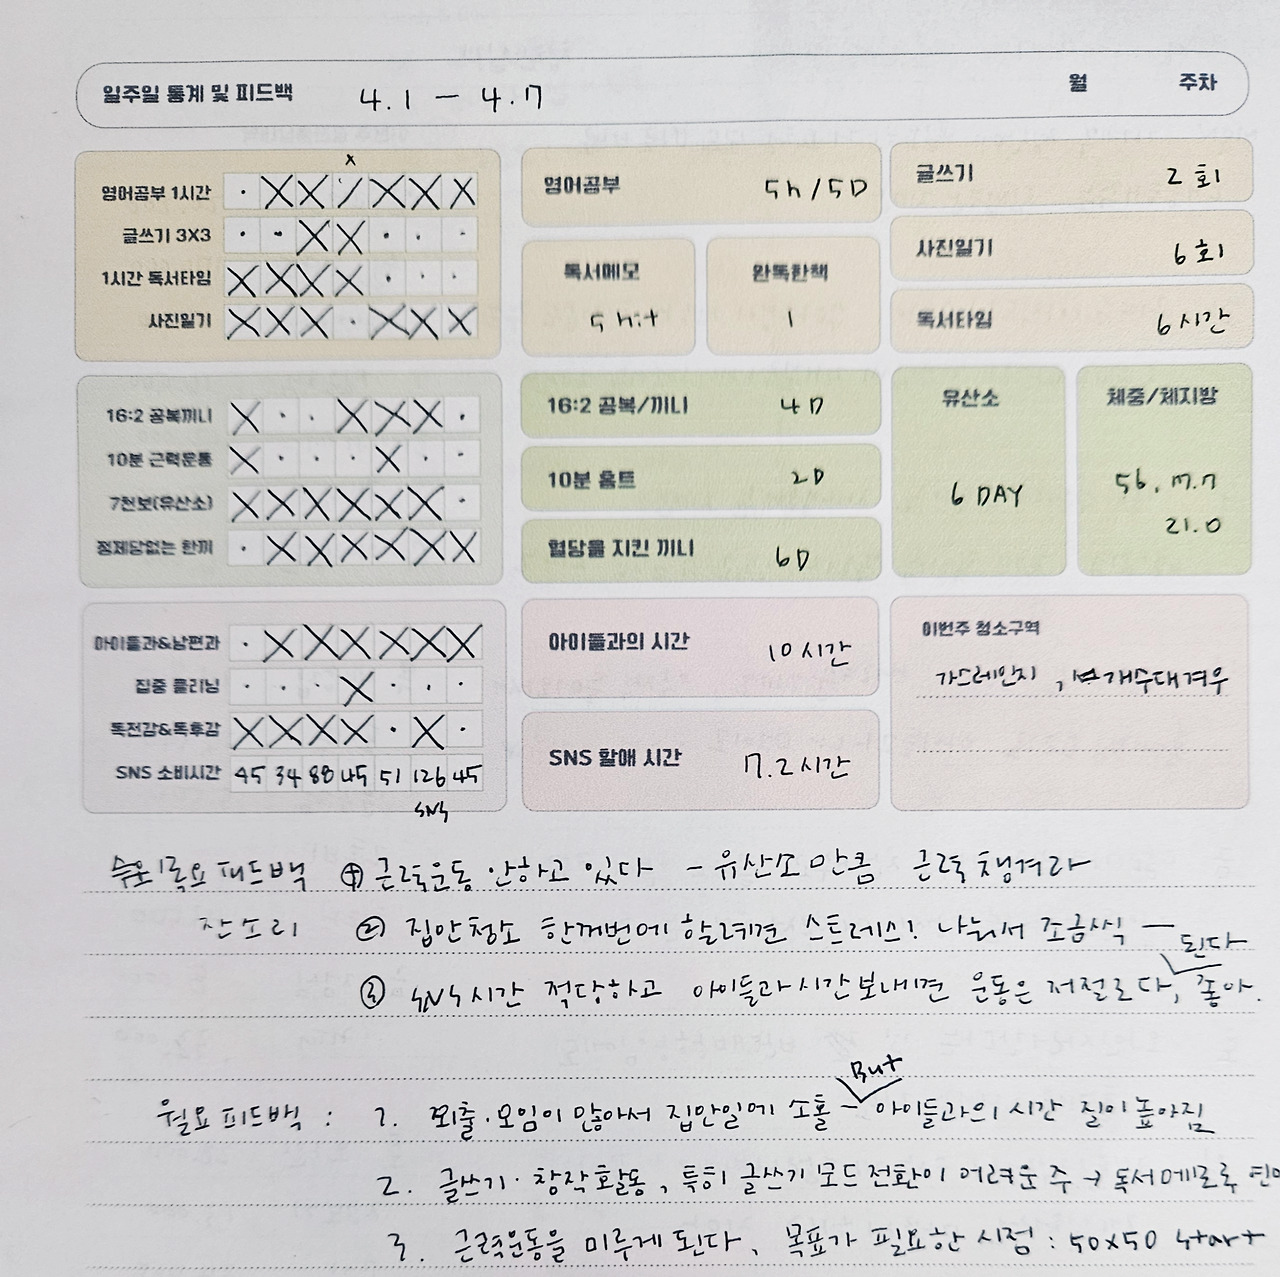 일주일 통계 및 피드백 4.1 - 4.7 월 주차
x
영어공부 1시간 · X X / X X X
글쓰기 3X3 · · X X · · ·
1시간 독서타임 X X X X · · ·
사진일기 X X X · X X X
영어공부 5h/5D
독서메모
5 hit
완독한책
1
글쓰기 2회
사진일기 6회
독서타임 6시간
16:2 공복끼니 X · · X X X ·
10분 근력운동 X · · · X · ·
7천보(유산소) X X X X X X ·
정제당없는 한끼 · X X X X X X
16:2 공복/끼니 4D
10분 홈트 2D
혈당을 지킨 끼니 6D
유산소
6 DAY
체중/체지방
56. 17.7
21.0
아이들과&남편과 · X X X X X X
집중 클리닝 · · · X · · ·
독전감&독후감 X X X X · X ·
SNS 소비시간 45 34 88 45 51 126 45
SNS
아이들과의 시간 10시간
SNS 할애 시간 7.2시간
이번주 청소구역
가스레인지, 개수대겨우
목요피드백 ① 근력운동 안하고 있다 - 유산소만큼 근력 챙겨라
잔소리 ② 집안청소 한꺼번에 할려면 스트레스! 나눠서 조금씩 —
된다
③ SNS시간 적당하고 아이들과시간보내면 운동은 저절로다, 좋아.
But
월요피드백 : 1. 외출·모임이 많아서 집안일에 소홀 - 아이들과의 시간 질이 높아짐
2. 글쓰기·창작활동, 특히 글쓰기 모드전환이 어려운 주 → 독서메모로
3. 근력운동을 미루게 된다, 목표가 필요한 시점 : 50x50 start